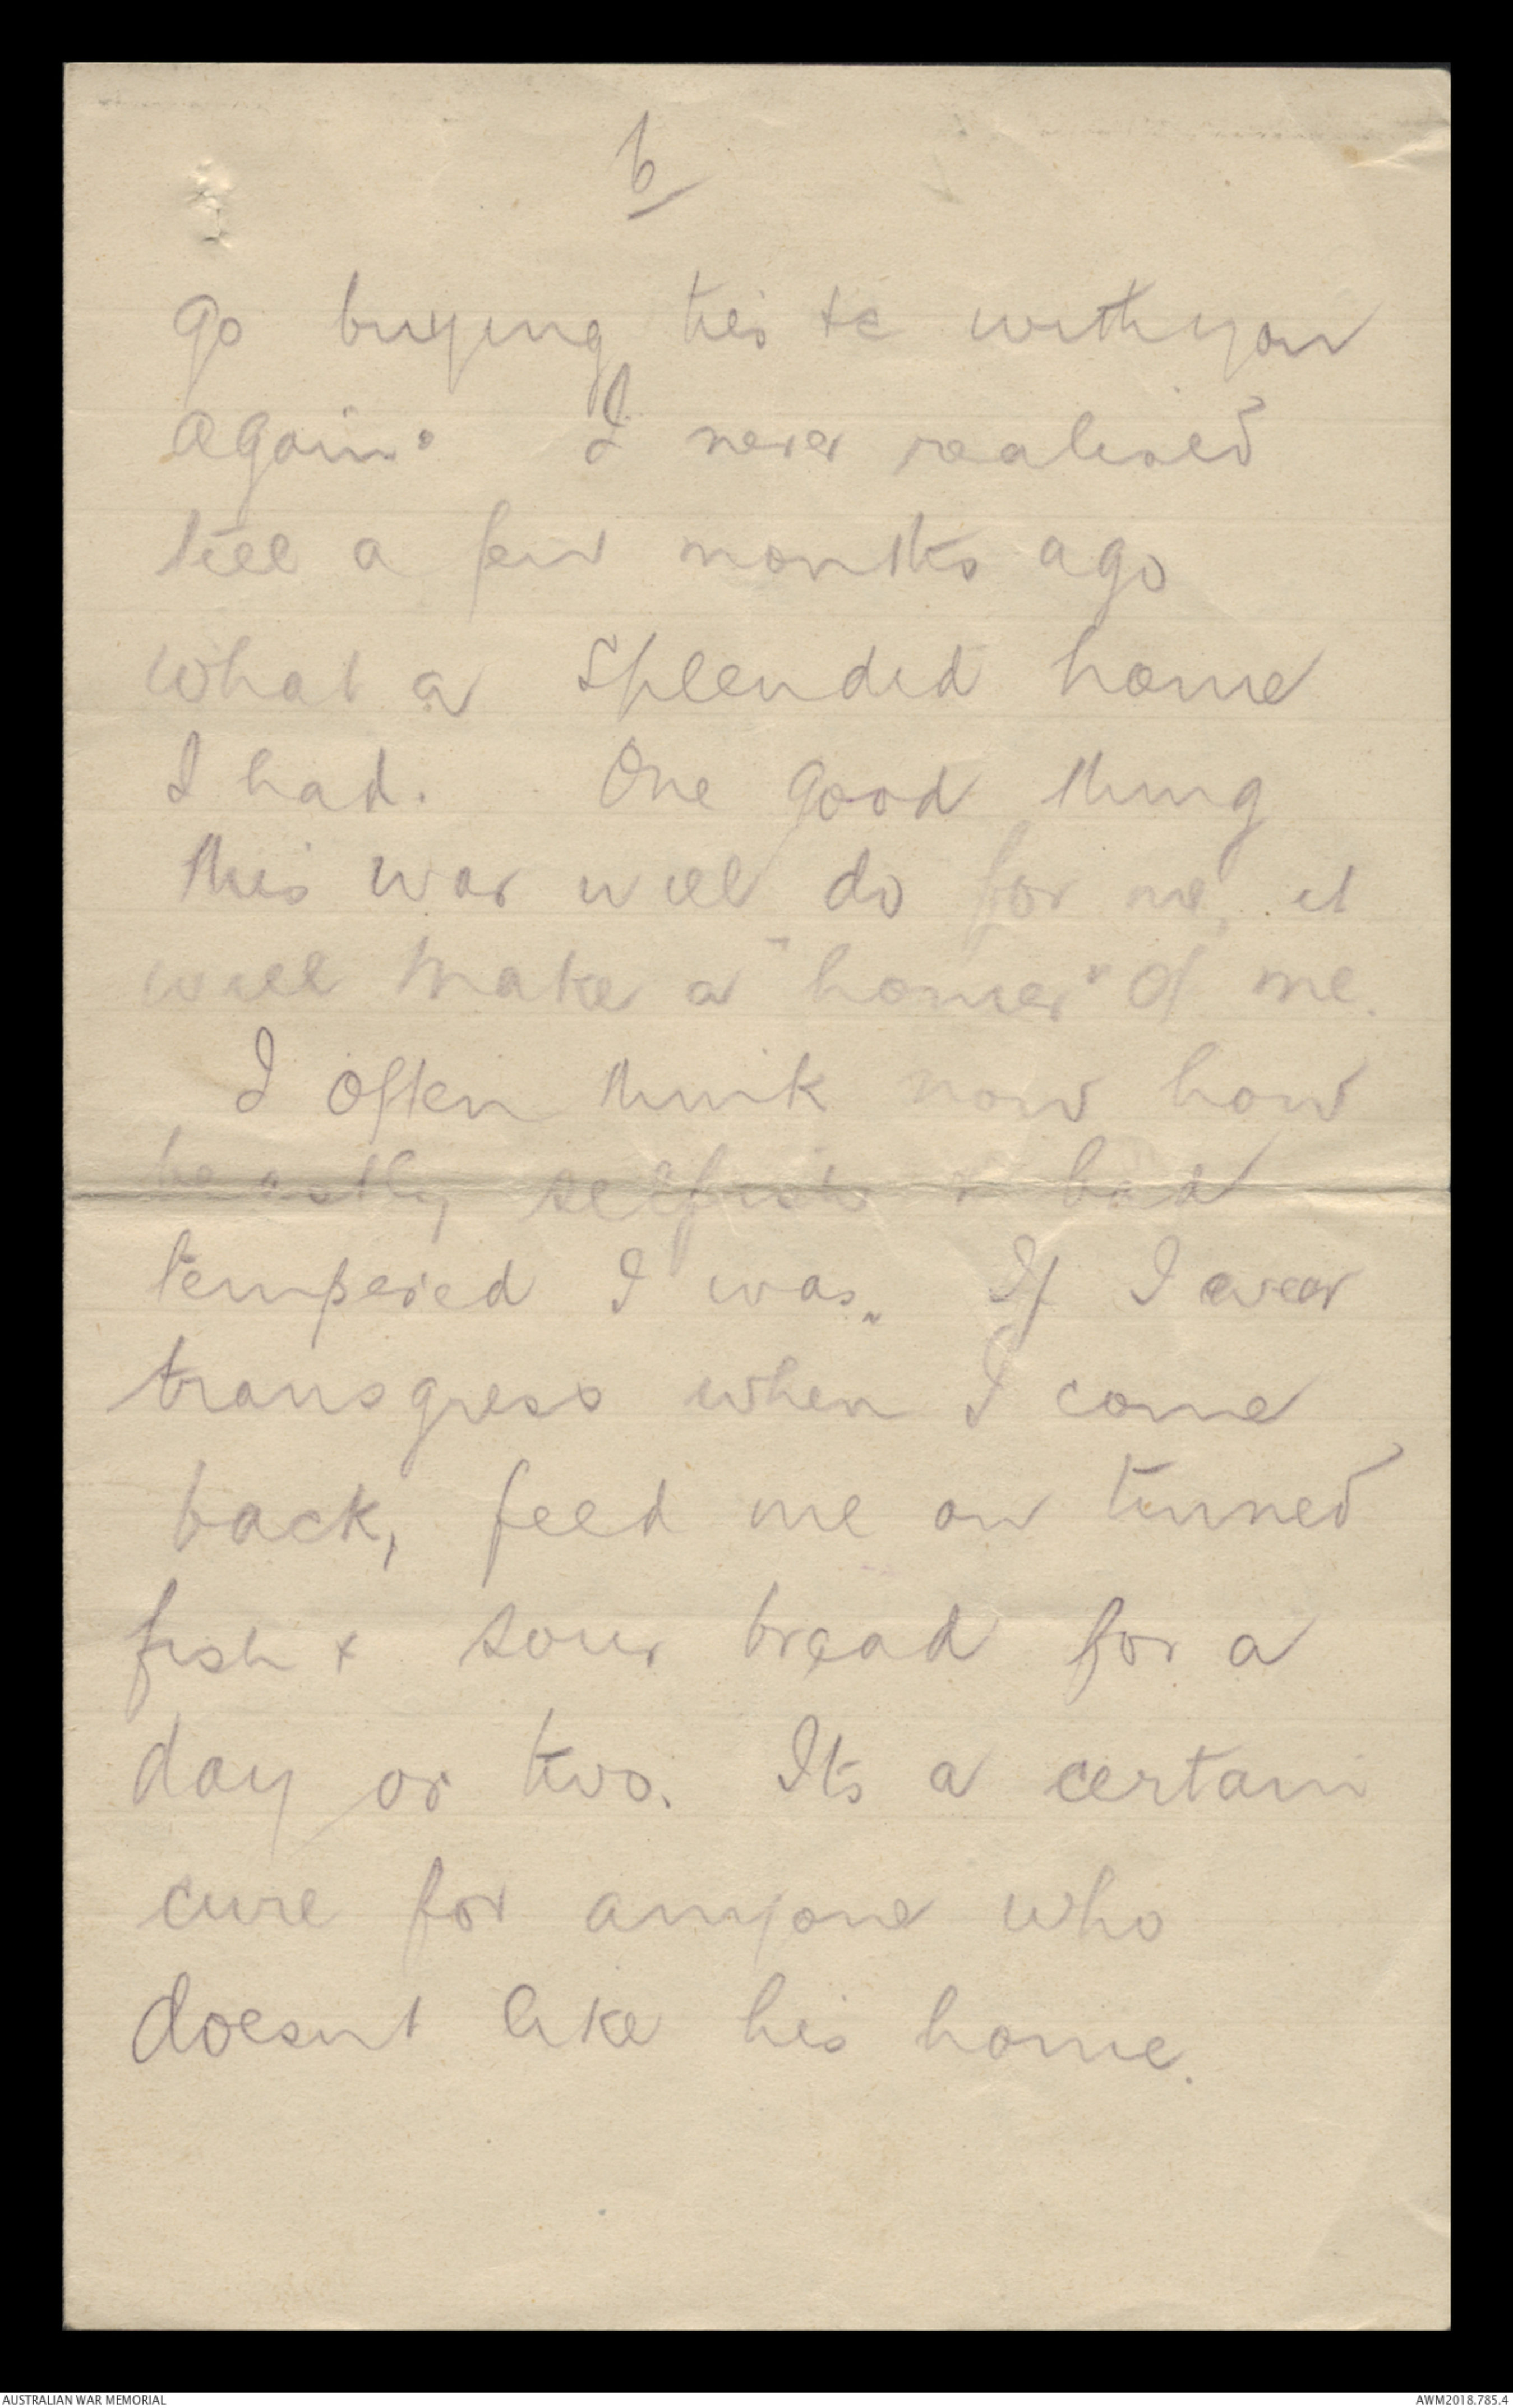 6
go buying ties &c with you
again. I never realised
till a few months ago
what a splendid home
I had. One good thing
this war will do for me, it
will make a "homer" of me.
I often think now how
beastly selfish & bad
tempered I was. If I ever
transgress when I come
back, feed me on tinned
fish & sour bread for a
day or two. Its a certain
cure for anyone who
doesnt like his home.
AUSTRALIAN WAR MEMORIAL
AWM2018.785.4